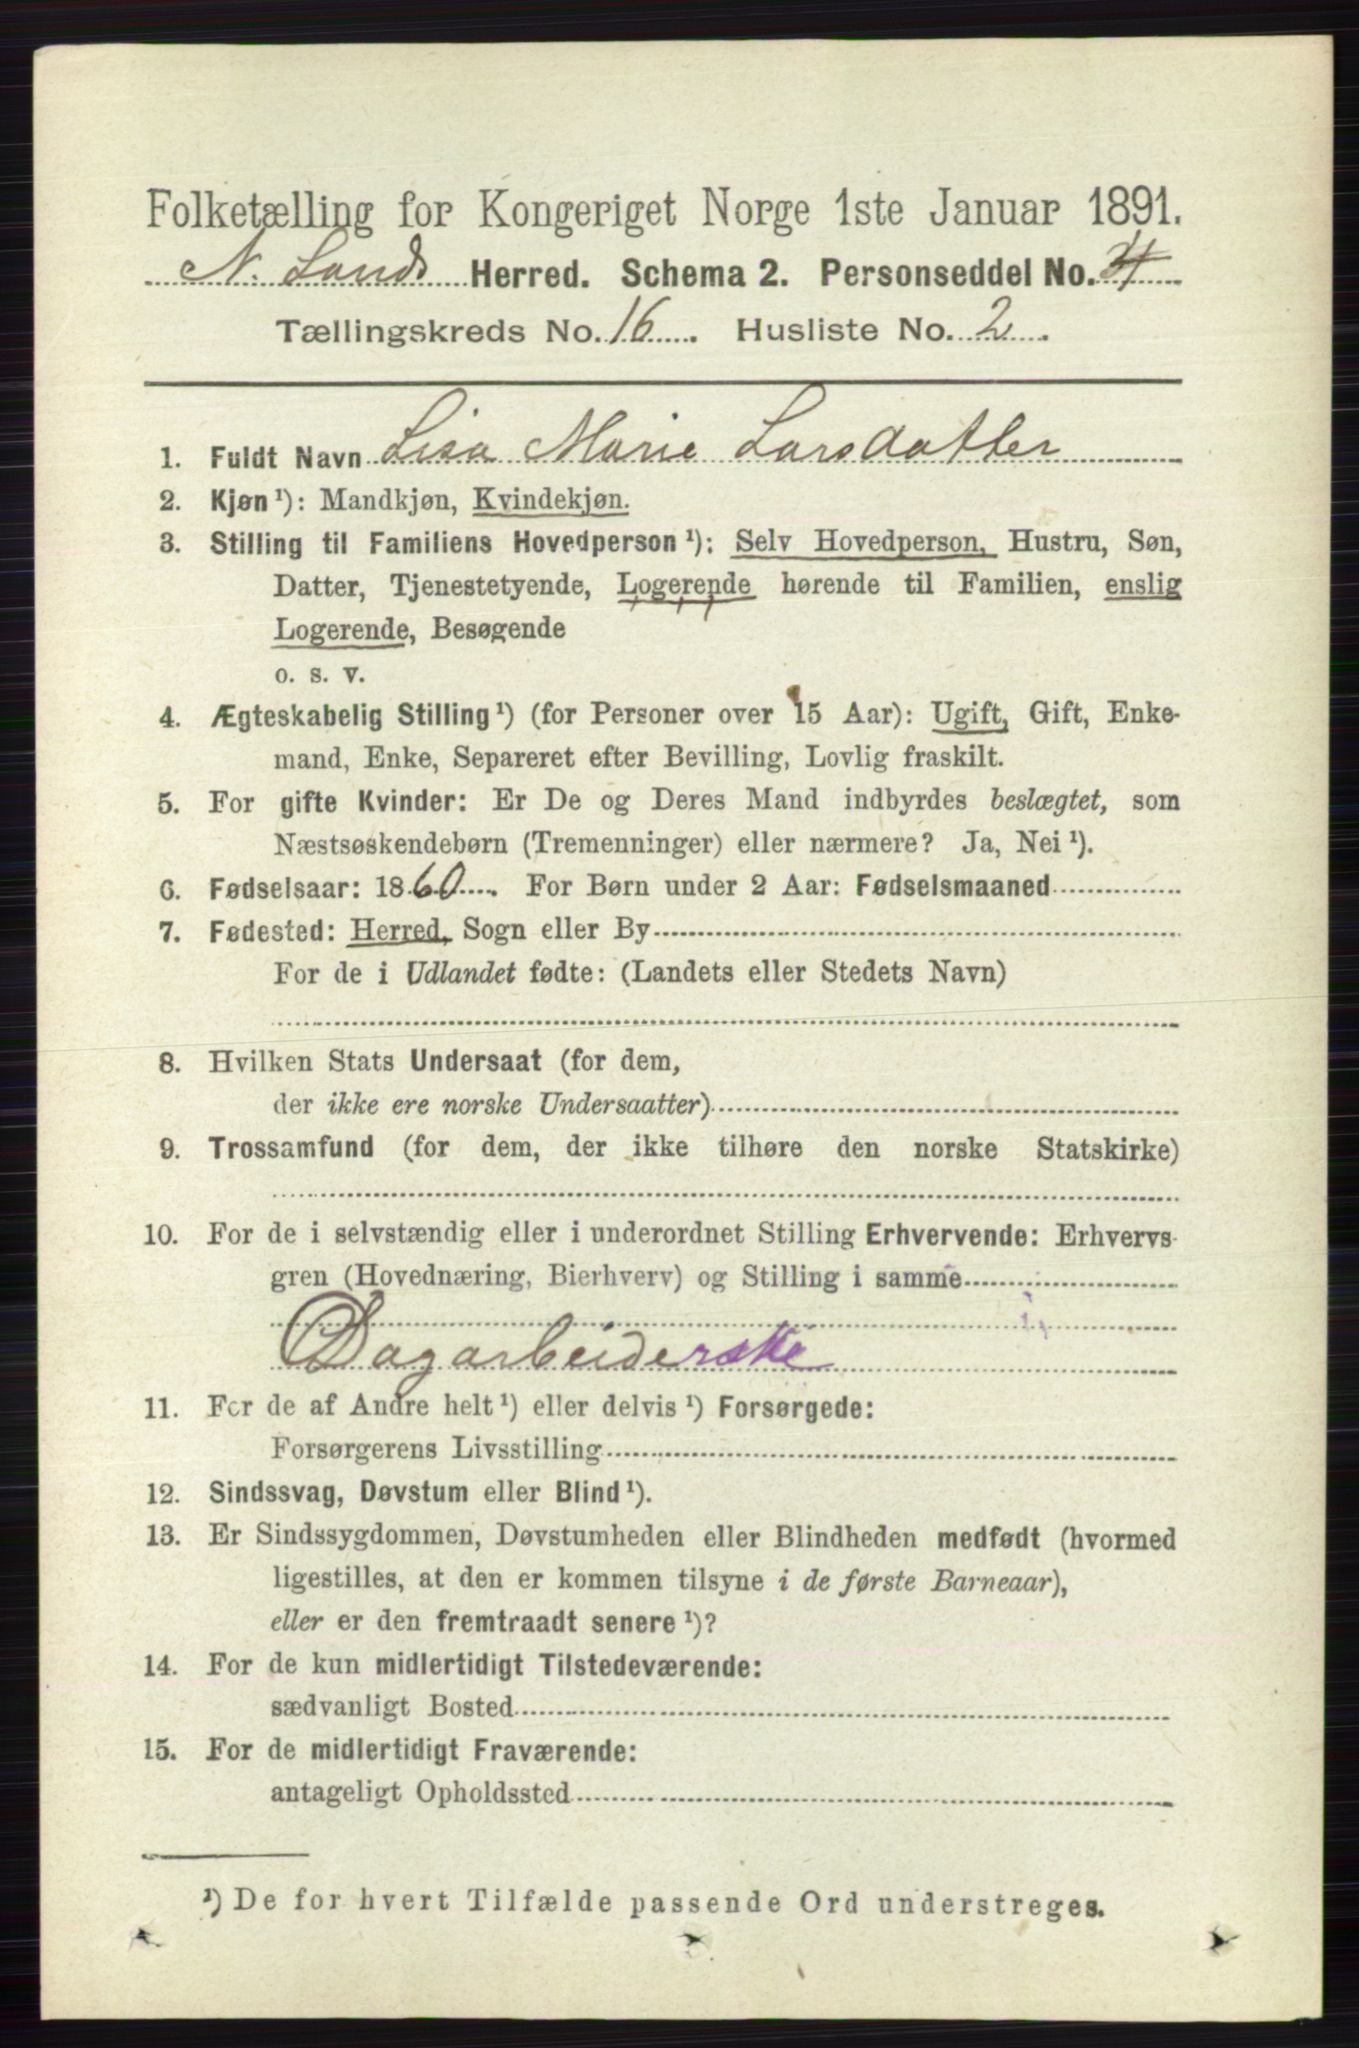 Folketælling for Kongeriget Norge 1ste Januar 1891.
N. Lands Herred. Schema 2. Personseddel No.
Tællingskreds No. 16. Husliste No. 2.
1. Fuldt Navn Lisa Marie Larsdatter
2. Kjøn ¹): Mandkjøn, Kvindekjøn.
3. Stilling til Familiens Hovedperson ¹): Selv Hovedperson, Hustru, Søn,
Datter, Tjenestetyende, Logerende hørende til Familien, enslig
Logerende, Besøgende
o. s. v.
4. Ægteskabelig Stilling ¹) (for Personer over 15 Aar): Ugift, Gift, Enke-
mand, Enke, Separeret efter Bevilling, Lovlig fraskilt.
5. For gifte Kvinder: Er De og Deres Mand indbyrdes beslægtet, som
Næstsøskendebørn (Tremenninger) eller nærmere? Ja, Nei ¹).
6. Fødselsaar: 1860. For Børn under 2 Aar: Fødselsmaaned
7. Fødested: Herred, Sogn eller By
For de i Udlandet fødte: (Landets eller Stedets Navn)
8. Hvilken Stats Undersaat (for dem,
der ikke ere norske Undersaatter)
9. Trossamfund (for dem, der ikke tilhøre den norske Statskirke)
10. For de i selvstændig eller i underordnet Stilling Erhvervende: Erhvervs-
gren (Hovednæring, Bierhverv) og Stilling i samme
Dagarbeiderske
11. For de af Andre helt ¹) eller delvis ¹) Forsørgede:
Forsørgerens Livsstilling
12. Sindssvag, Døvstum eller Blind ¹).
13. Er Sindssygdommen, Døvstumheden eller Blindheden medfødt (hvormed
ligestilles, at den er kommen tilsyne i de første Barneaar),
eller er den fremtraadt senere ¹)?
14. For de kun midlertidigt Tilstedeværende:
sædvanligt Bosted
15. For de midlertidigt Fraværende:
antageligt Opholdssted
¹) De for hvert Tilfælde passende Ord understreges.